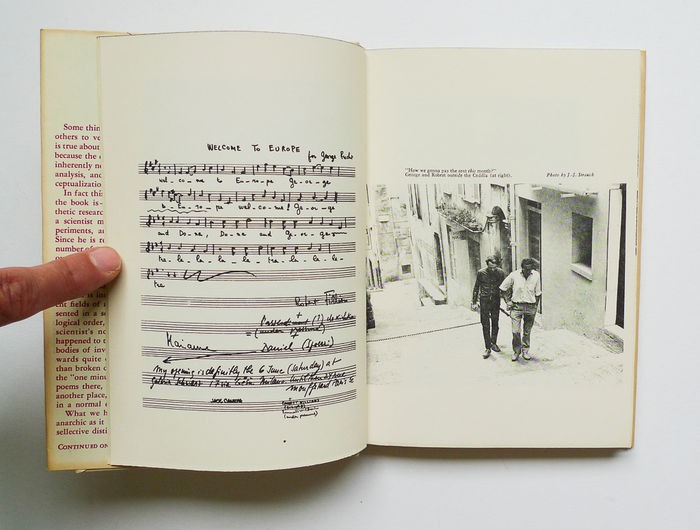 Some thin
others to ve
is true about
because the
inherently no
analysis, and
ceptualization
In fact thi
the book is
thetic resear
a scientist m
periments, an
Since he is r
number of
ent fields of
sented in a s
logical order,
scientist's no
happened to t
bodies of inv
wards quite
than broken
the "one minu
poems there,
another place,
in a normal
What we h
anarchic as it
sellective disti
CONTINUED ON
WELCOME TO EUROPE
for George Brecht
wel-co-me to Eu-ro-pe Ge-or-ge
Eu-ro-pe wel-co-me! Ge-or-ge
and Do-na, Do-na and Ge-or-ge
tra-la-la-la-la tra-la-la-la-
tra
Robert Filliou
+
Marianne
Daniel (Spoerri)
my opening is definitely the 6 June (Saturday) at
"How we gonna pay the rent this month?"
George and Robert outside the Cédille (at right).
Photo by J.-J. Strauch